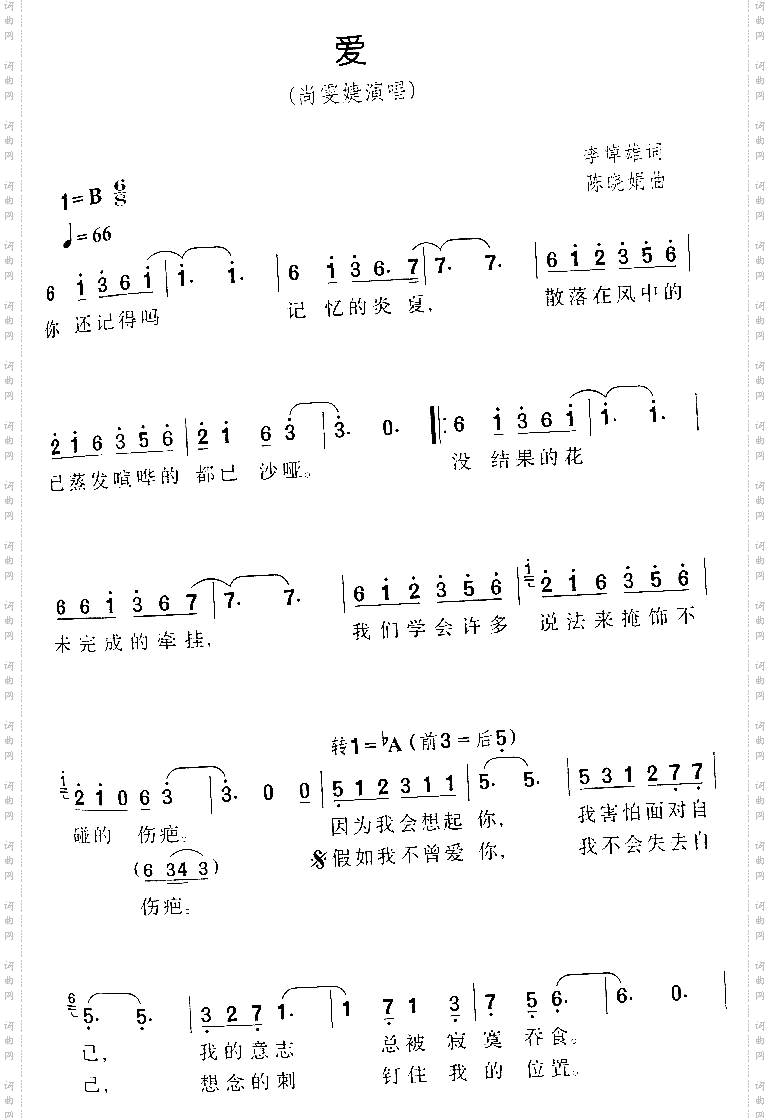 爱
(尚雯婕演唱)
李焯雄词
陈晓娟曲
1=B 6/8
♩=66
6 1 3 6 1 | 1. 1. | 6 1 3 6. 7 | 7. 7. | 6 1 2 3 5 6 |
你 还记得吗 记 忆的炎 夏, 散落在风中的
2 1 6 3 5 6 | 2 1 6 3 | 3. 0. ‖: 6 1 3 6 1 | 1. 1. |
已蒸发喧哗的 都已 沙哑。 没 结果的花
6 6 1 3 6 7 | 7. 7. | 6 1 2 3 5 6 | 2 1 6 3 5 6 |
未完成的牵挂, 我们学会许多 说法来掩饰不
转1=♭A (前3=后5)
2 1 0 6 3 | 3. 0 0 | 5 1 2 3 1 1 | 5. 5. | 5 3 1 2 7 7 |
碰的 伤疤。 因为我会想起 你, 我害怕面对自
(6 34 3) 𝄋假如我不曾爱 你, 我不会失去自
伤疤。
5. 5. | 3 2 7 1. | 1 7 1 3 | 7 5 6. | 6. 0. |
己, 我的意志 总被 寂 寞 吞食。
己, 想念的刺 钉住 我 的 位置。
词曲网